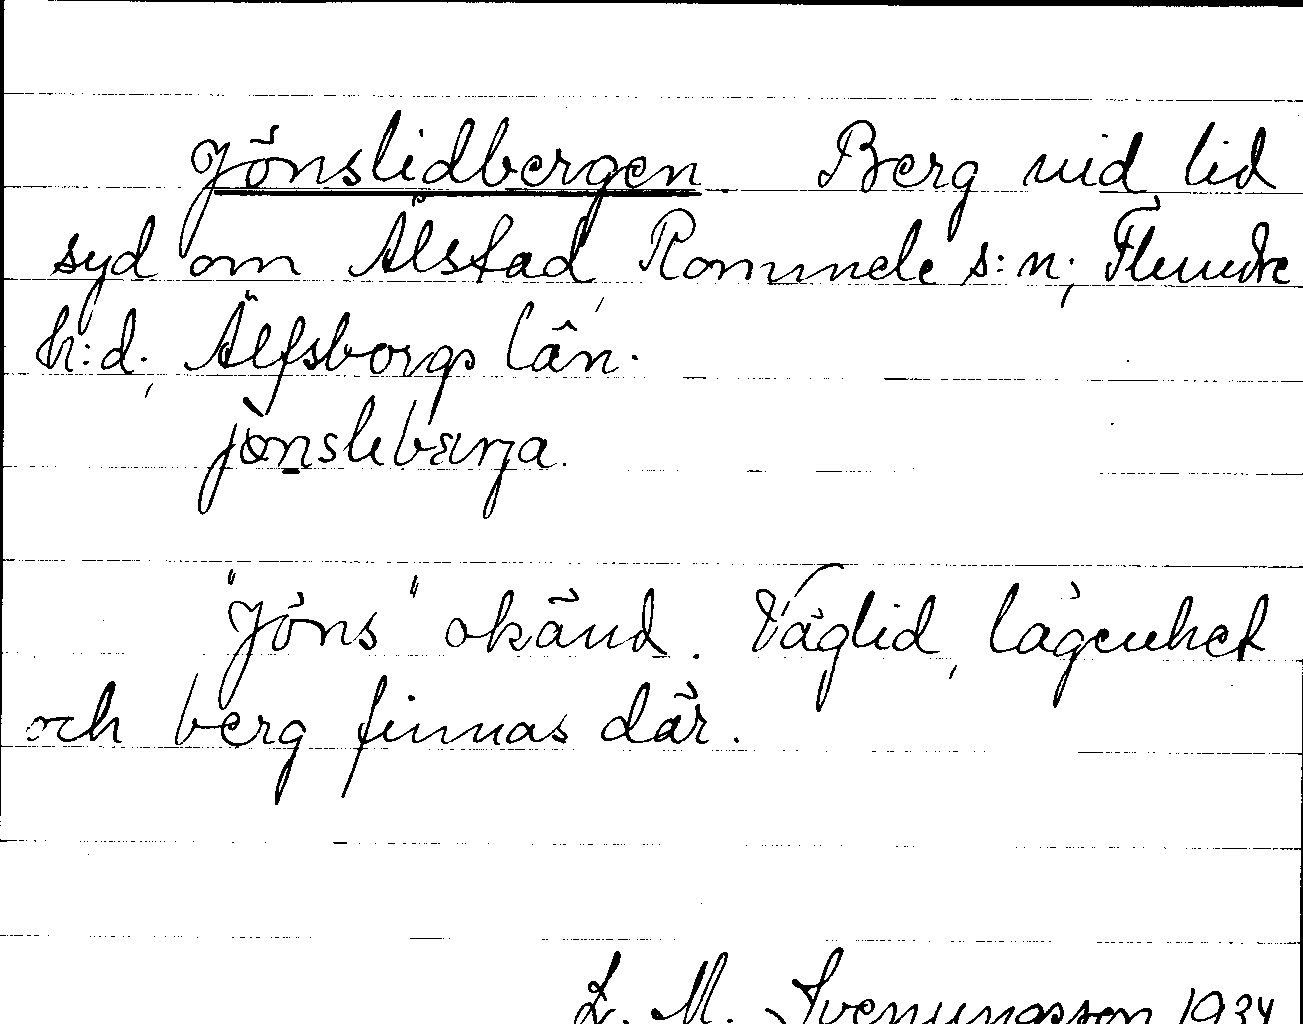 Jönslidbergen. Berg vid lid
syd om Ålstad, Rommele s:n; Flundre
h:d; Älfsborgs län.
jönslebærja.
"Jöns" okänd. Väglid, lägenhet
och berg finnas där.
L. M. Svenungsson 1934